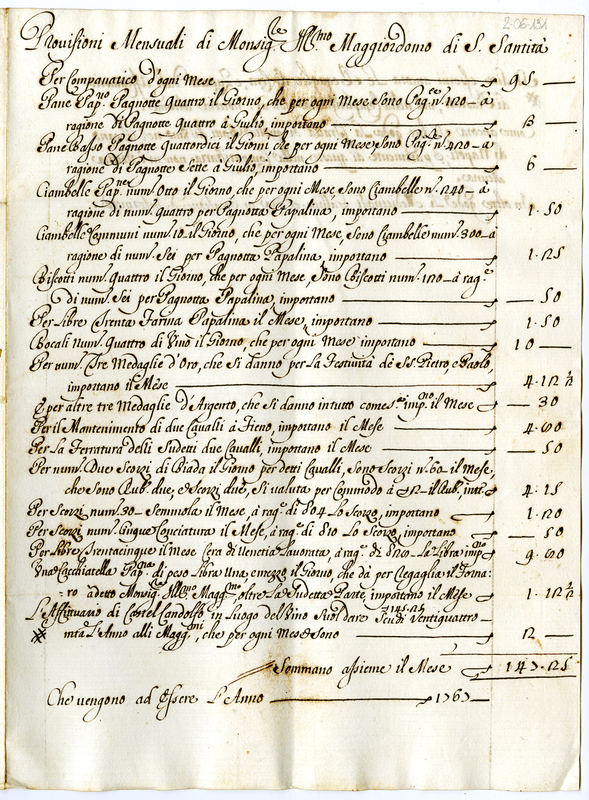 2-06-131
Provisioni Mensuali di Monsig.re Ill.mo Maggiordomo di S. Santità
Per Companatico d'ogni Mese 95
Pane Pap.no Pagnotte quattro il Giorno, che per ogni Mese sono Pag.e n. 120 - à
ragione di Pagnotte quattro à Giulio, importano 3
Pane Basso Pagnotte quattordici il Giorno, che per ogni Mese, sono Pag.te n. 420 - à
ragione di Pagnotte Sette à Giulio, importano 6
Ciambelle Pap.ne num. Otto il Giorno, che per ogni Mese Sono Ciambelle n. 240 - à
ragione di num. quattro per Pagnotta Papalina, importano 1.50
Ciambelle Communi num. 10 il Giorno, che per ogni Mese, Sono Ciambelle num. 300 - à
ragione di num. Sei per Pagnotta Papalina, importano 1.25
Biscotti num. quattro il Giorno, che per ogni Mese, Sono Biscotti num. 120 - à rag.e
di num. Sei per Pagnotta Papalina, importano 50
Per Libre Trenta Farina Papalina il Mese, importano 1.50
Bocali num. Quattro di Vino il Giorno, che per ogni Mese importano 10
Per num. Tre Medaglie d'Oro, che Si danno per La Festività de SS. Pietro, e Paolo,
importano il Mese 4.12½
E per altre tre Medaglie d'Argento, che Si danno in tutto come s.a imp.no il Mese 30
Per il Mantenimento di due Cavalli à Fieno, importano il Mese 4.60
Per La Ferratura delli Sudetti due Cavalli, importano il Mese 50
Per num. Due Scorzi di Biada il Giorno per detti Cavalli, Sono Scorzi n. 60 il Mese,
che sono Rub. due, e Scorzi due, Si valuta per Commodo à il Rub. 4.15
Per Scorzi num. 30 - Semmola il Mese, à rag.e di 804 Lo Scorzo, importano 1.20
Per Scorzi num. Cinque Conciatura il Mese, à rag.e di 810 Lo Scorzo, importano 50
Per Libre Trentacinque il Mese Cera di Venetia Lavorata, à rag.e di La Libra imp.no 9.60
Una Cacchiatella Pap.na di peso Libra Una, e mezzo il Giorno, che dà per Regaglia il Forna:
ro adetto Monsig.re Ill.mo Magg.mo, oltre La Sudetta Parte, importano il Mese 1.12½
L'Affittuario di Castel Candolfo in Luogo del Vino Suol dare Scudi Ventiquattro
m.ta L'Anno alli Magg.mi, che per ogni Mese Sono 2
Sommano assieme il Mese 147.25
Che vengono ad Essere L'Anno 1767